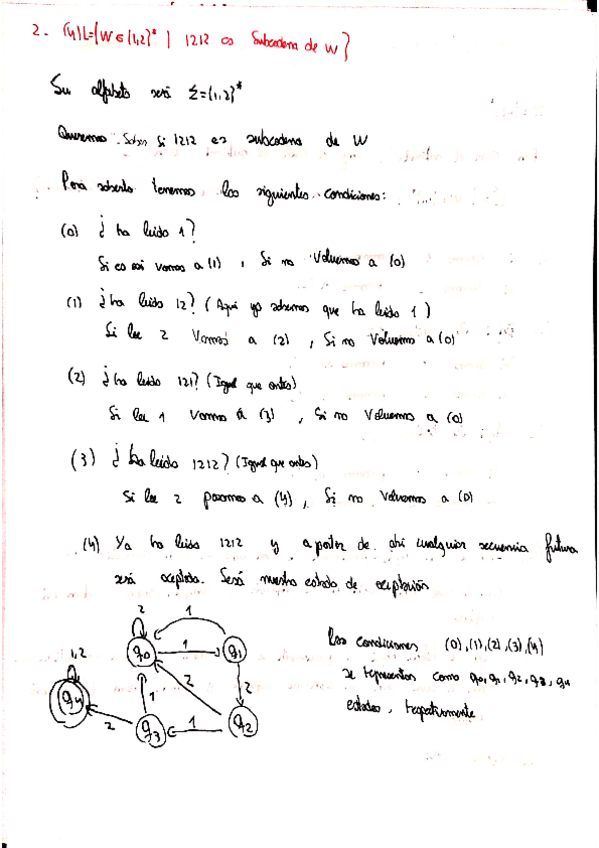 2.- (4) L={W∈{1,2}* | 1212 es Subcadena de W}
Su alfabeto será Σ={1,2}*
Queremos Saber Si 1212 es subcadena de W
Para saberlo tenemos las siguientes condiciones:
(0) ¿ha leido 1?
Si es así vamos a (1) , Si no Volvemos a (0)
(1) ¿ha leido 12? (Aqui ya sabemos que ha leido 1)
Si lee 2 Vamos a (2) , Si no Volvemos a (0)
(2) ¿ha leido 121? (Igual que antes)
Si lee 1 Vamos a (3) , Si no Volvemos a (0)
(3) ¿ha leido 1212? (Igual que antes)
Si lee 2 pasamos a (4), Si no Volvemos a (0)
(4) Ya ha leido 1212 y a partir de ahí cualquier secuencia futura
será aceptada. Será nuestro estado de aceptación
Las condiciones (0),(1),(2),(3),(4)
se representan como q0,q1,q2,q3,q4
estados, respectivamente
2
1
1,2
q0
1
q1
q4
1
2
2
2
q3
1
q2